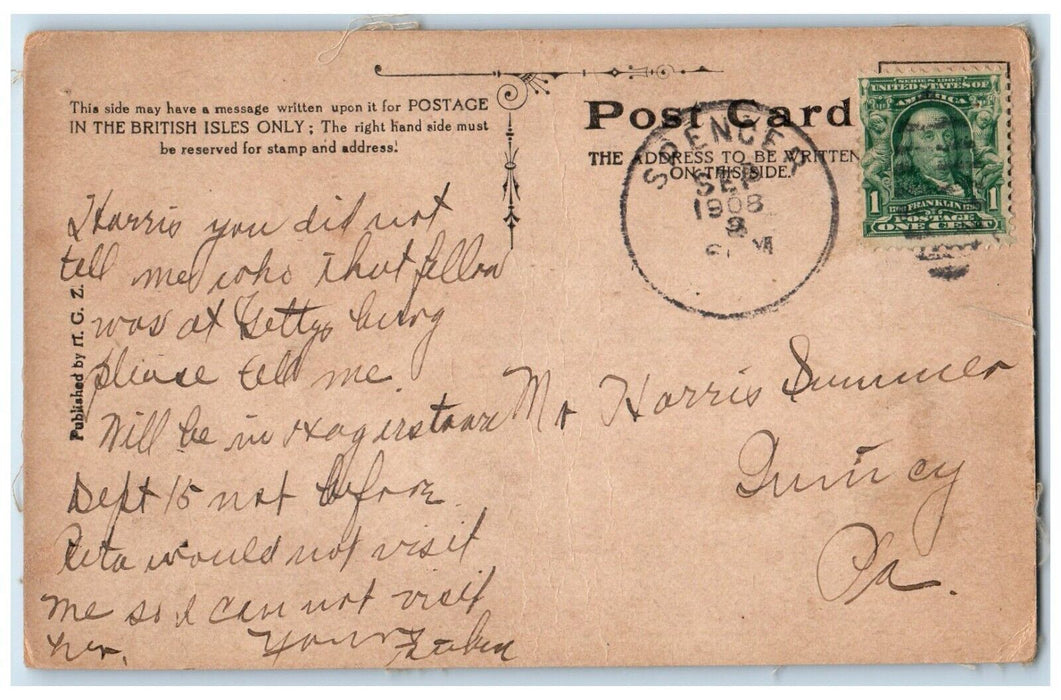 This side may have a message written upon it for POSTAGE
IN THE BRITISH ISLES ONLY; The right hand side must
be reserved for stamp and address!
Harris you did not
tell me who that fellow
was at Gettysburg
please tell me.
Will be in Hagerstown
Sept 15 not before
would not visit
me so I can not visit
her. Yours
Published by H. G. Z.
Post Card
THE ADDRESS TO BE WRITTEN
ON THIS SIDE.
SPENCER
SEP
1908
M
SERIES 1902
UNITED STATES OF
AMERICA
1 FRANKLIN 1
POSTAGE
ONE CENT
Mr Harris Summer
Quincy
Pa.